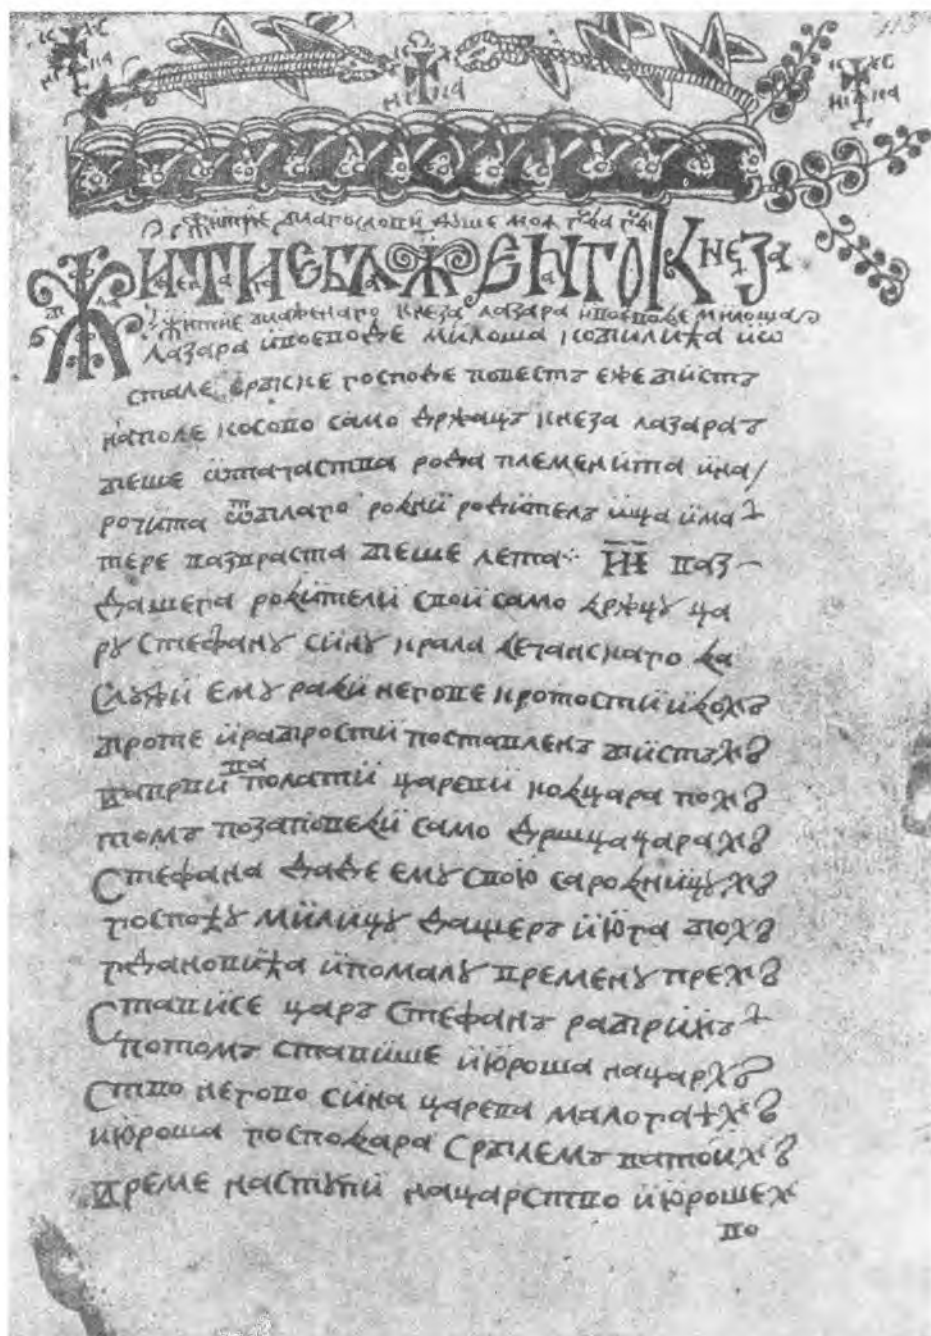 ІС ХС
НИ КА
ІС ХС
НИ КА
ІС ХС
НИ КА
113
житие благослови душе моя
ЖИТИЕ БЛАЖЕНГО КНЕЗА
житие блаженаго кнеза лазара и воеводе милоша
лазара и воеводе милоша кобилића и ѡ
стале србске господе повестъ еже бистъ
на поле косово само држацъ кнеза лазаръ
беше ѿтачаства рода племенита и на
рочита ѿ благо родни родителъ ѿца и ма
тере вазраста беше лета ИІ ваз
дашега родители свои само држцу ца
ру стефану сину крала дечанскаго да
служи ему ради негове кротости и до
броте и рабрости поставленъ бистъ
напрви полати цареви ковчара по
томъ по заповеди само дршца цара
Стефана даде ему свою сародницу
госпоћу милицу дащеръ июга бо
гдановића и помалу времену пре
стависе царъ Стефанъ рабрихъ
потомъ ставише июроша нацар
ство негово сина царева малога
июроша господара Срблемъ ватои
време наступи нацарство июроше
во